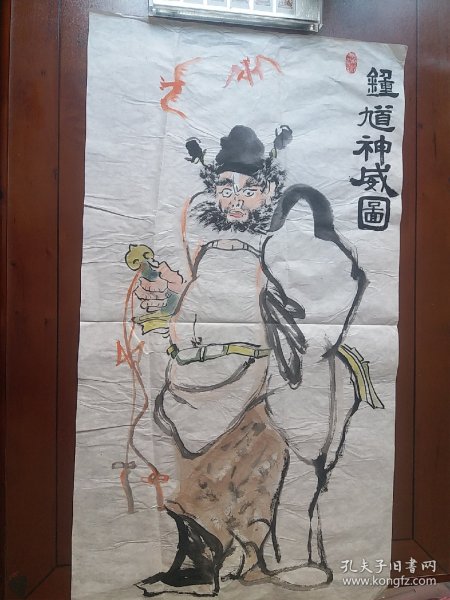 鍾馗神威圖
孔夫子旧书网
www.kongfz.com